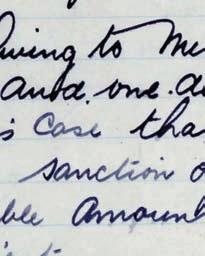 owing to me
and. one. d
s case tha
sanction o
ble amount